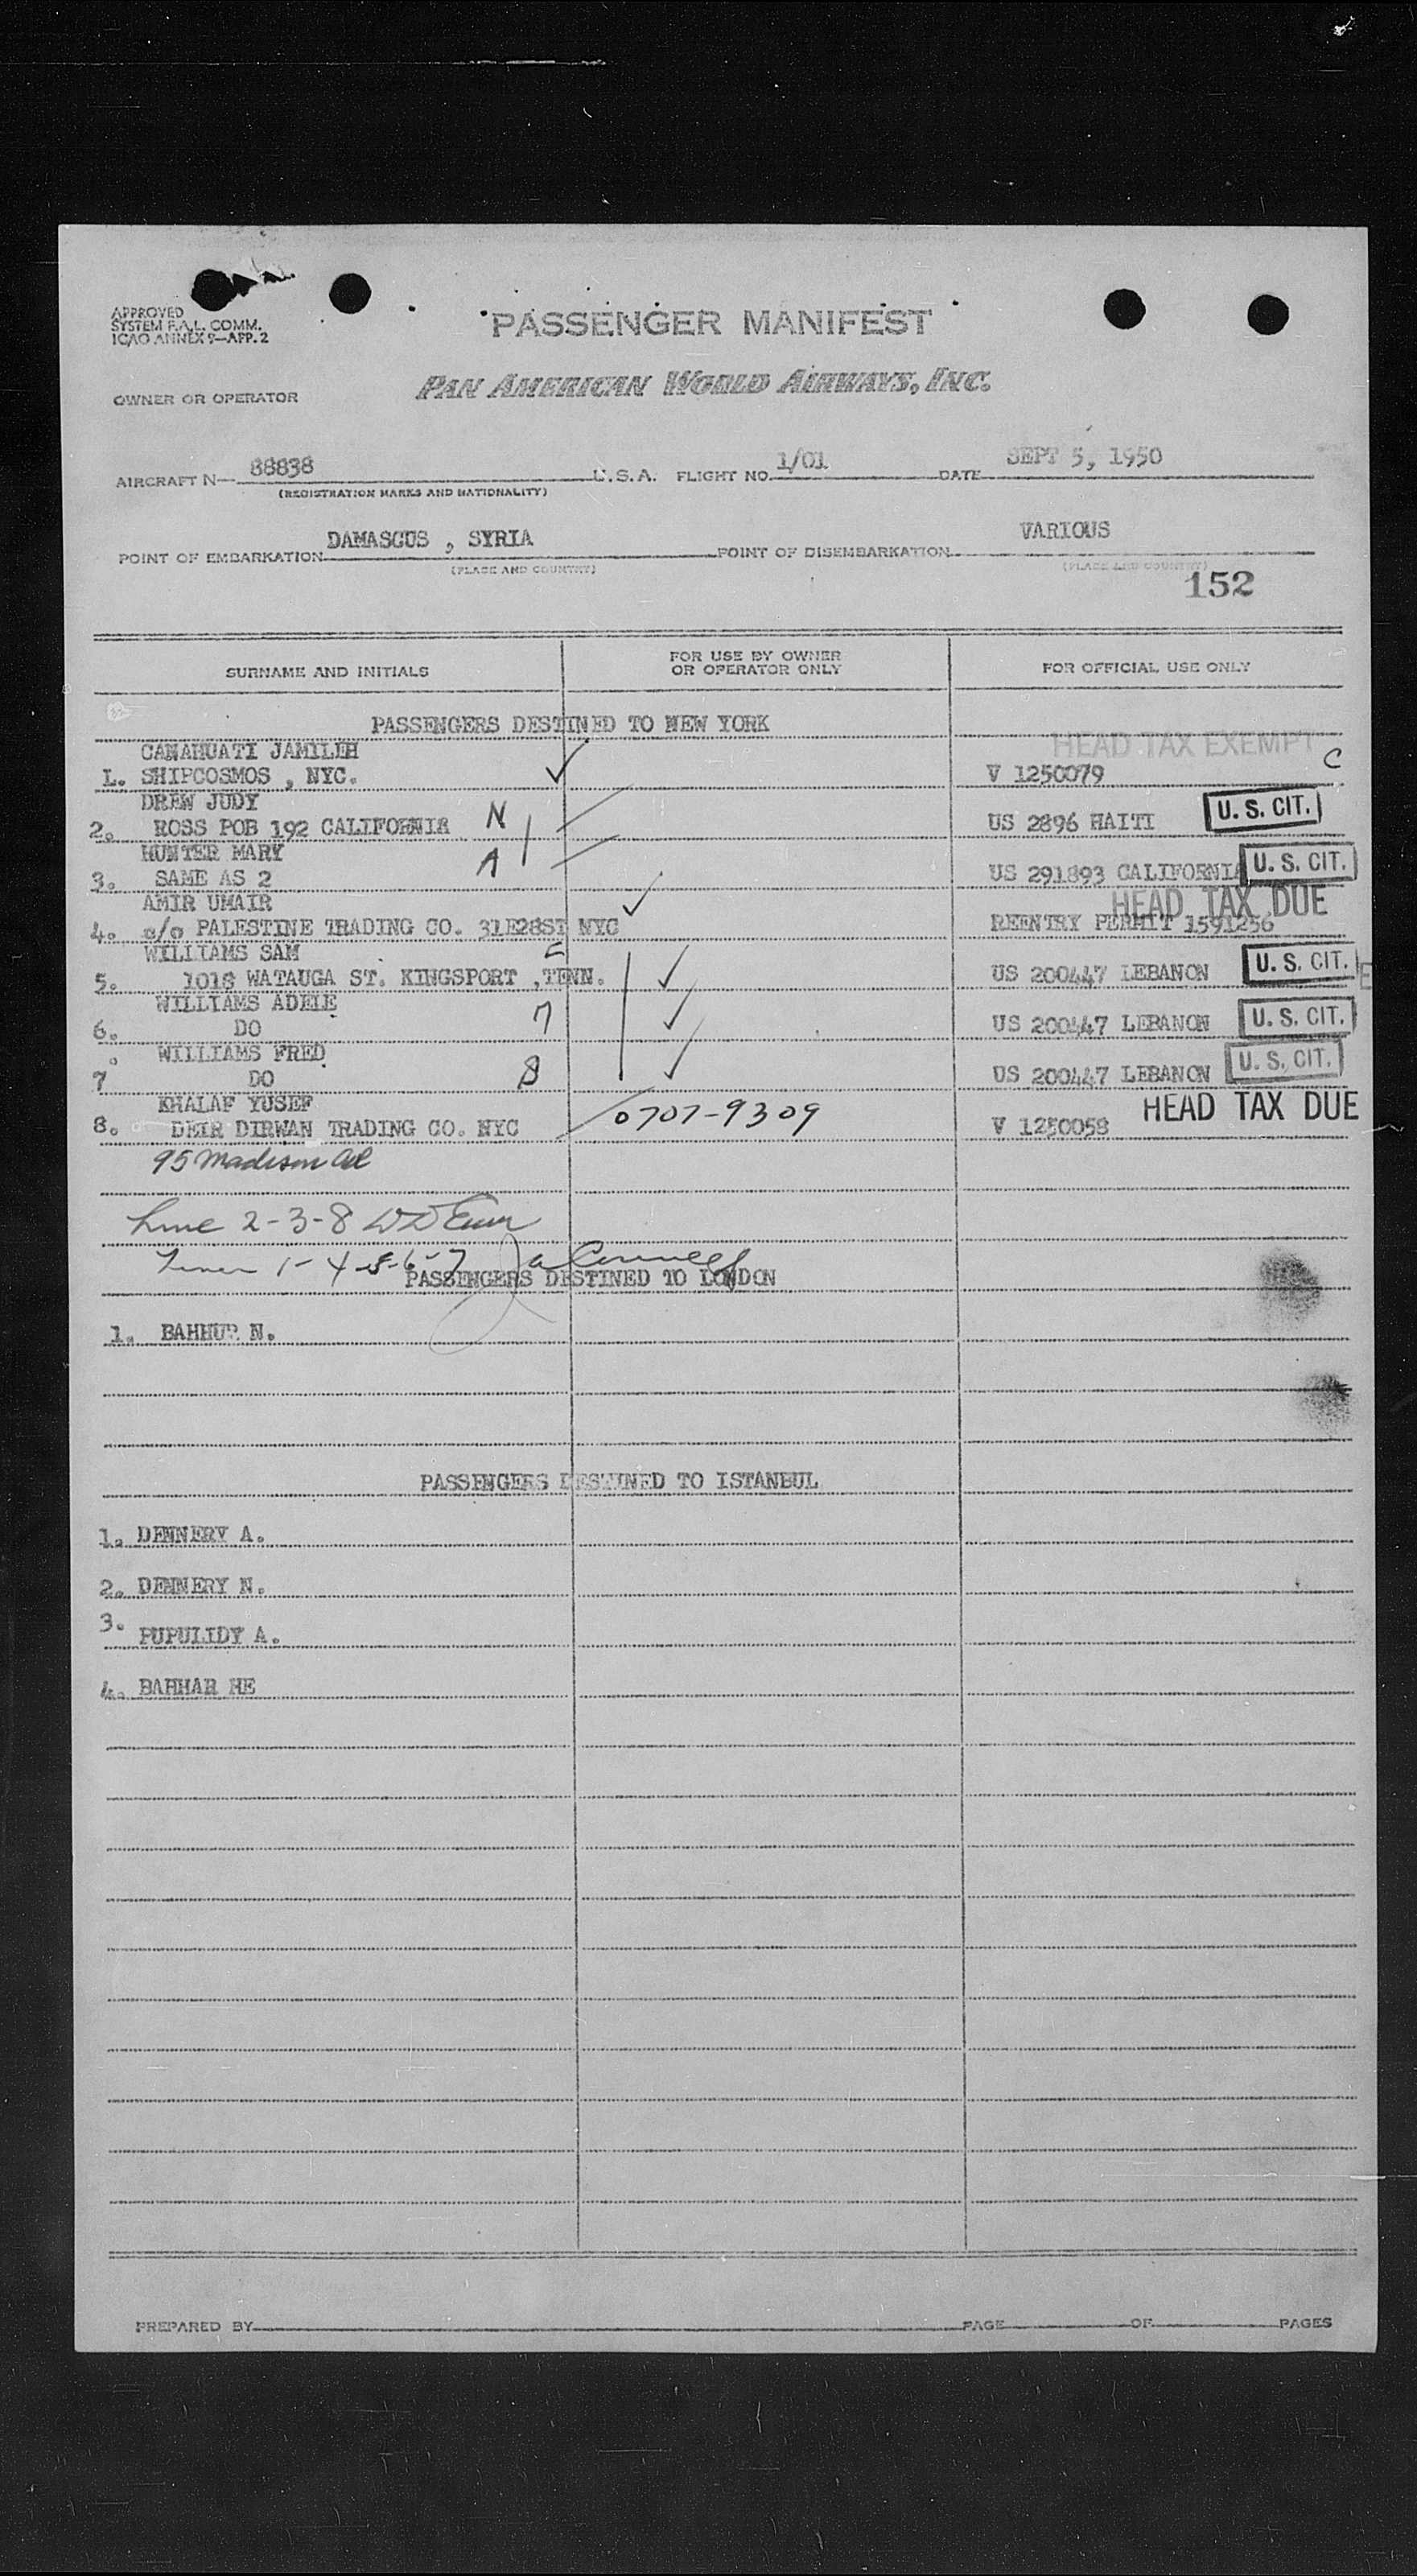 APPROVED
SYSTEM F.A.L. COMM.
ICAO ANNEX 9—APP. 2
PASSENGER MANIFEST
PAN AMERICAN WORLD AIRWAYS, INC.
OWNER OR OPERATOR
AIRCRAFT N— 88838 U.S.A. FLIGHT NO. 1/01 DATE SEPT 5, 1950
(REGISTRATION MARKS AND NATIONALITY)
POINT OF EMBARKATION DAMASCUS , SYRIA POINT OF DISEMBARKATION VARIOUS
(PLACE AND COUNTRY) (PLACE AND COUNTRY)
152
SURNAME AND INITIALS FOR USE BY OWNER OR OPERATOR ONLY FOR OFFICIAL USE ONLY
PASSENGERS DESTINED TO NEW YORK
CANAHUATI JAMILEH HEAD TAX EXEMPT
1. SHIPCOSMOS , NYC. V 1250079 C
DREW JUDY
2. ROSS POB 192 CALIFORNIA N US 2896 HAITI U. S. CIT.
HUNTER MARY
3. SAME AS 2 A US 291893 CALIFORNIA U. S. CIT.
AMIR UMAIR HEAD TAX DUE
4. c/o PALESTINE TRADING CO. 31E28ST NYC REENTRY PERMIT 1591256
WILLIAMS SAM
5. 1018 WATAUGA ST. KINGSPORT ,TENN. US 200447 LEBANON U. S. CIT.
WILLIAMS ADELE
6. DO 7 US 200447 LEBANON U. S. CIT.
WILLIAMS FRED
7 DO 8 US 200447 LEBANON U. S. CIT.
KHALAF YUSEF HEAD TAX DUE
8. DEIR DIRWAN TRADING CO. NYC 0707-9309 V 1250058
95 Madison
Line 2-3-8
1-4-5-6-7
PASSENGERS DESTINED TO LONDON
1. BAHHUR N.
PASSENGERS DESTINED TO ISTANBUL
1. DENNERY A.
2. DENNERY N.
3. PUPULIDY A.
4. BAHHAR HE
PREPARED BY PAGE OF PAGES